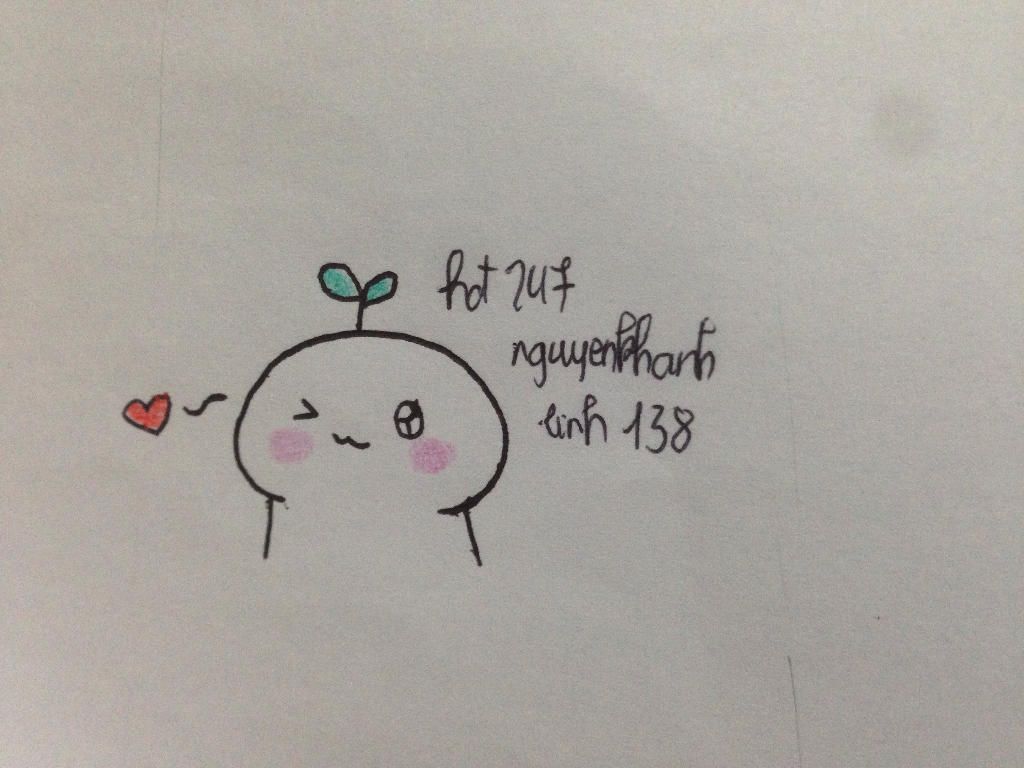 hot 247
nguyenkhanh
linh 138